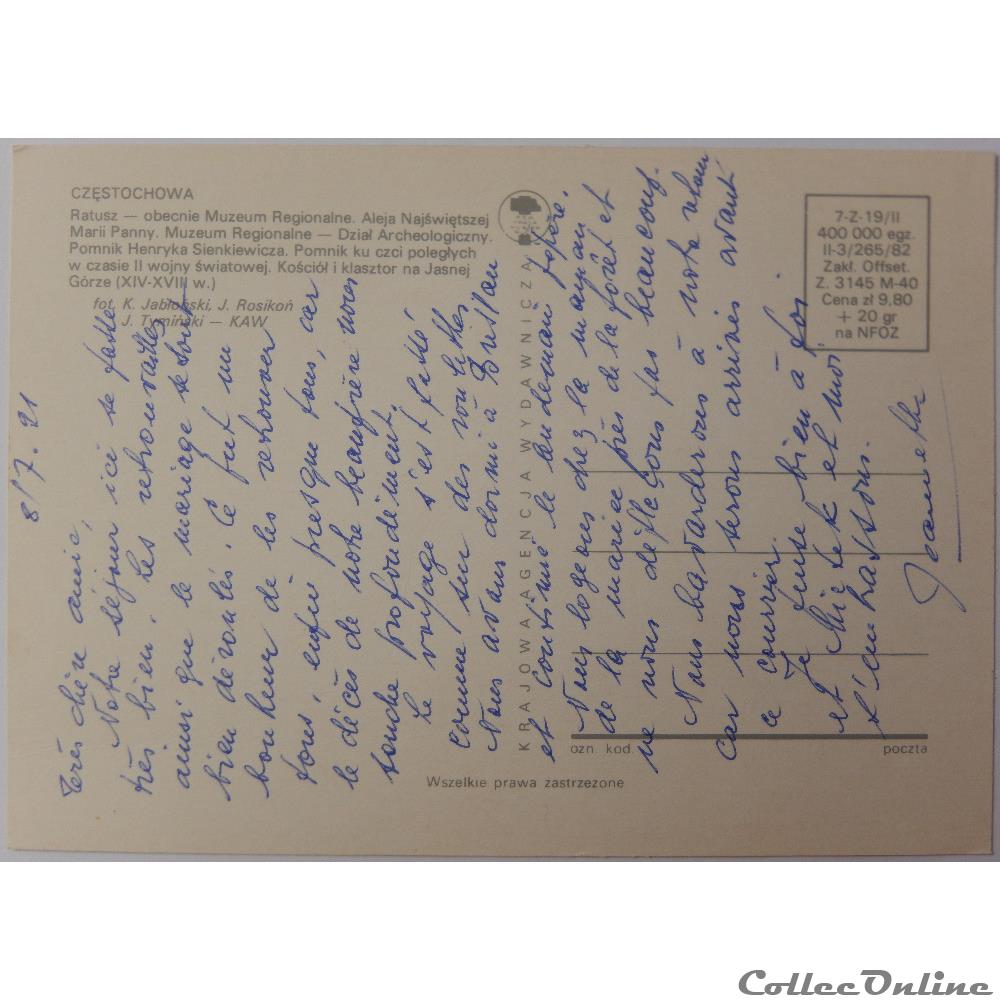 CZĘSTOCHOWA
Ratusz — obecnie Muzeum Regionalne. Aleja Najświętszej
Marii Panny. Muzeum Regionalne — Dział Archeologiczny.
Pomnik Henryka Sienkiewicza. Pomnik ku czci poległych
w czasie II wojny światowej. Kościół i klasztor na Jasnej
Górze (XIV-XVIII w.)
fot. K. Jabłoński, J. Rosikoń
J. Tymiński — KAW
KRAJOWA AGENCJA WYDAWNICZA
7-Z-19/II
400 000 egz.
II-3/265/82
Zakł. Offset.
Z. 3145 M-40
Cena zł 9,80
+ 20 gr
na NFOZ
ozn. kod.
poczta
Wszelkie prawa zastrzeżone
8/7.91
Très chère amie,
Notre séjour ici se passe
très bien. Les retrouvailles
ainsi que le mariage se sont
bien déroulés. Ce fut un
bonheur de les retrouver
tous, enfin presque tous, car
le décès de notre beaufrère nous
touche profondément.
Le voyage s'est passé
comme sur des roulettes
Nous avons dormi à
et continué le lendemain
Nous logeons chez la maman
de la mariée près de la forêt et
ne nous déplaçons pas beaucoup.
Nous bavarderons à notre retour
car nous serons arrivés avant
ce courrier.
Je pense bien à toi
et Mietek et moi
t'embrassons.
Jeannette
CollecOnline